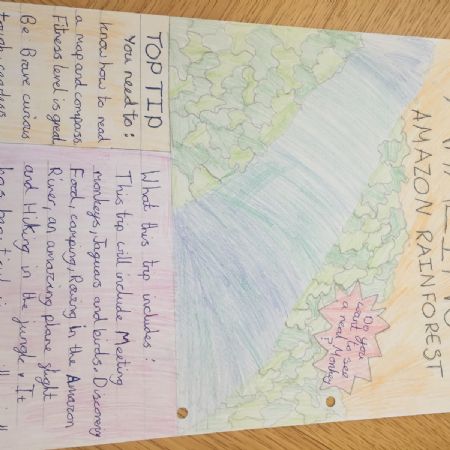 AMAZON RAINFOREST
Do you
want to see
a real Monkey
?
TOP TIP
You need to:
know how to read
a map and compass
Fitness level is great
Be Brave curious
What this trip includes!
This trip will include Meeting
monkeys, Jaguars and birds. Discovery
Food, camping, Roaring in the Amazon
River, an amazing plane flight
and Hiking in the jungle. It
has beautiful